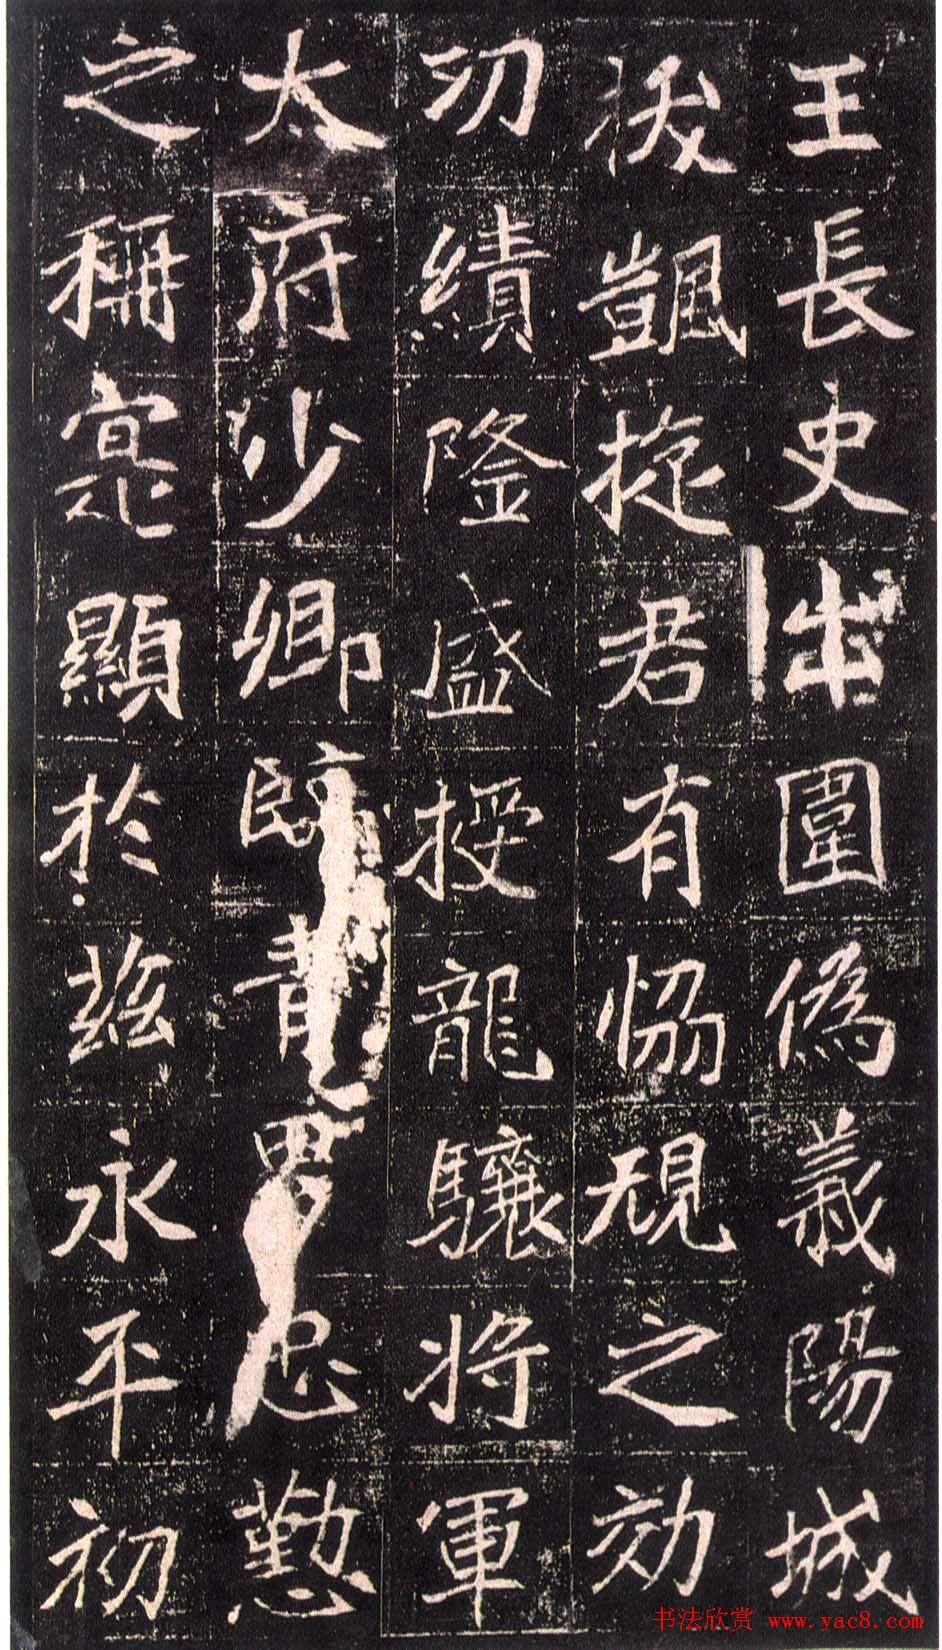 王長史出圍偽義陽城
拔颽旋君有協規之効
功績隆盛授龍驤將軍
太府少卿臨青男忠懃
之稱寔顯於茲永平初
书法欣赏 www.yac8.com